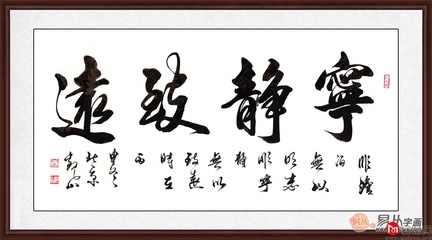 寧靜致遠
非澹
泊
無以
明志
非寧
靜
無以
致遠
時在
丙
北京
易从字画